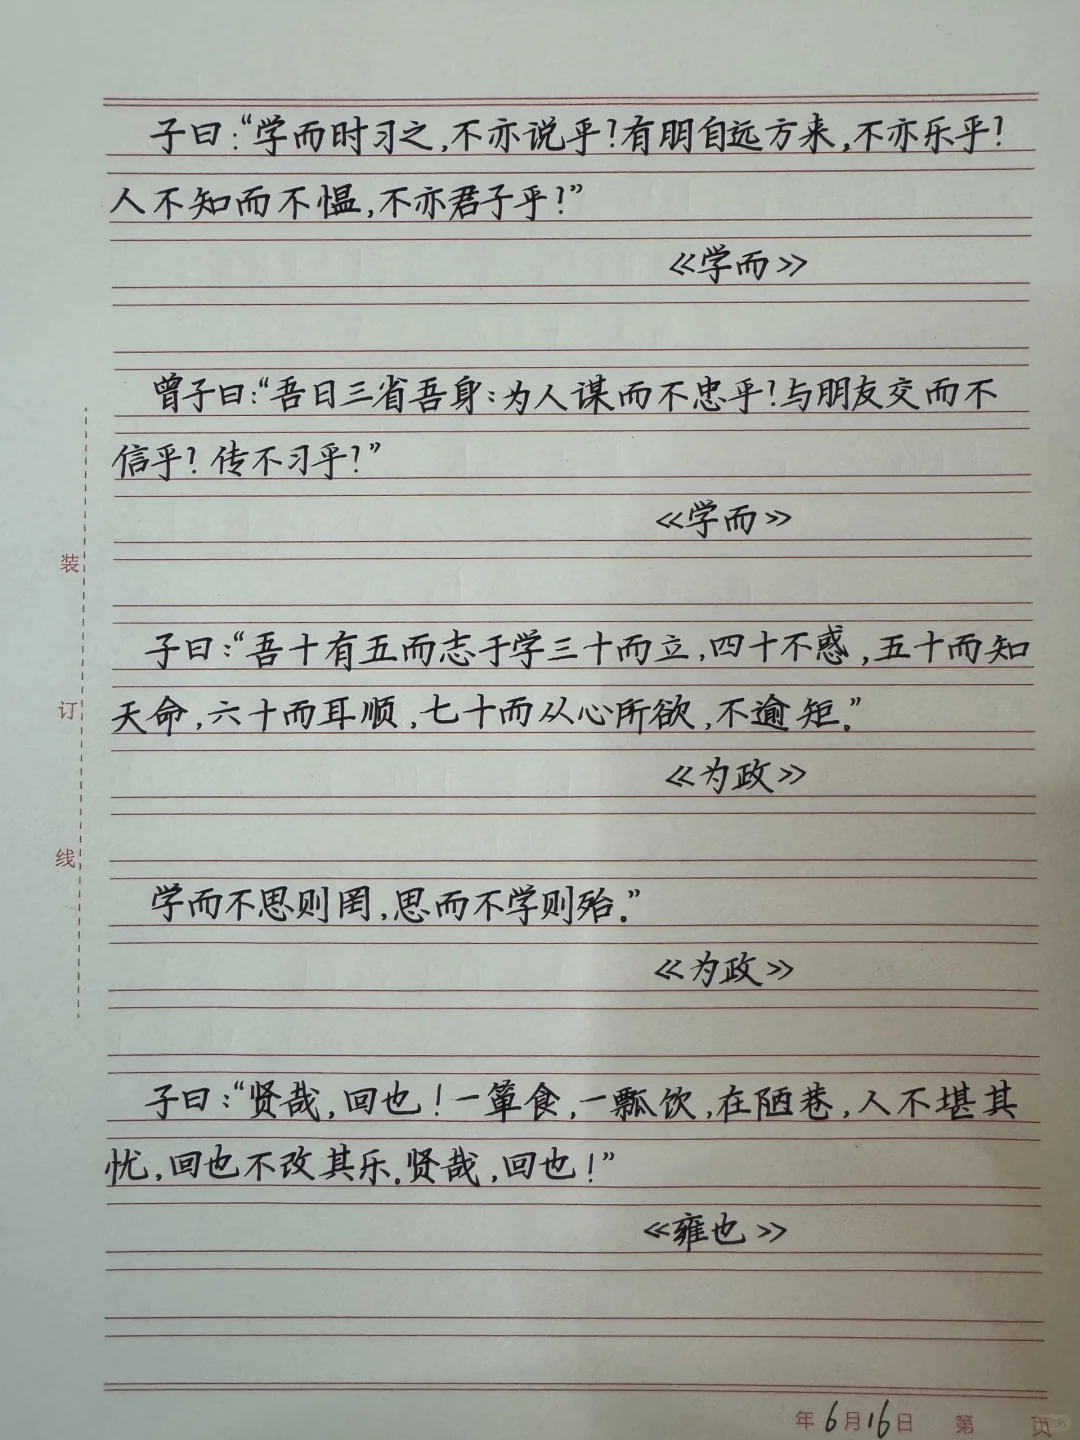 子曰:“学而时习之,不亦说乎?有朋自远方来,不亦乐乎?
人不知而不愠,不亦君子乎?”
《学而》
曾子曰:“吾日三省吾身:为人谋而不忠乎?与朋友交而不
信乎?传不习乎?”
《学而》
子曰:“吾十有五而志于学三十而立,四十不惑,五十而知
天命,六十而耳顺,七十而从心所欲,不逾矩。”
《为政》
学而不思则罔,思而不学则殆。”
《为政》
子曰:“贤哉,回也!一箪食,一瓢饮,在陋巷,人不堪其
忧,回也不改其乐。贤哉,回也!”
《雍也》
装
订
线
年6月16日 第 页